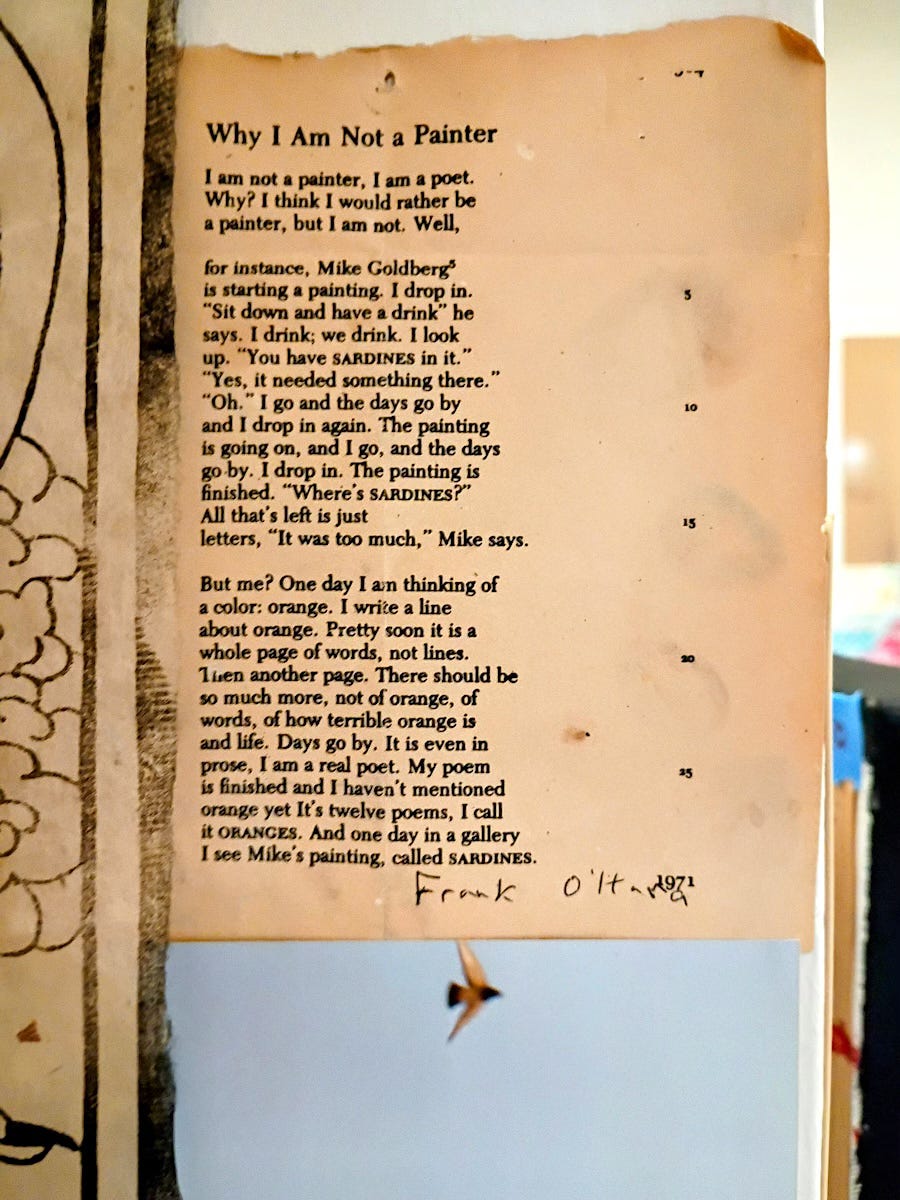 Why I Am Not a Painter
I am not a painter, I am a poet.
Why? I think I would rather be
a painter, but I am not. Well,
for instance, Mike Goldberg⁵
is starting a painting. I drop in. 5
“Sit down and have a drink” he
says. I drink; we drink. I look
up. “You have SARDINES in it.”
“Yes, it needed something there.”
“Oh.” I go and the days go by 10
and I drop in again. The painting
is going on, and I go, and the days
go by. I drop in. The painting is
finished. “Where's SARDINES?”
All that's left is just 15
letters, “It was too much,” Mike says.
But me? One day I am thinking of
a color: orange. I write a line
about orange. Pretty soon it is a
whole page of words, not lines. 20
Then another page. There should be
so much more, not of orange, of
words, of how terrible orange is
and life. Days go by. It is even in
prose, I am a real poet. My poem 25
is finished and I haven't mentioned
orange yet It's twelve poems, I call
it ORANGES. And one day in a gallery
I see Mike's painting, called SARDINES.
Frank O'Hara 1971